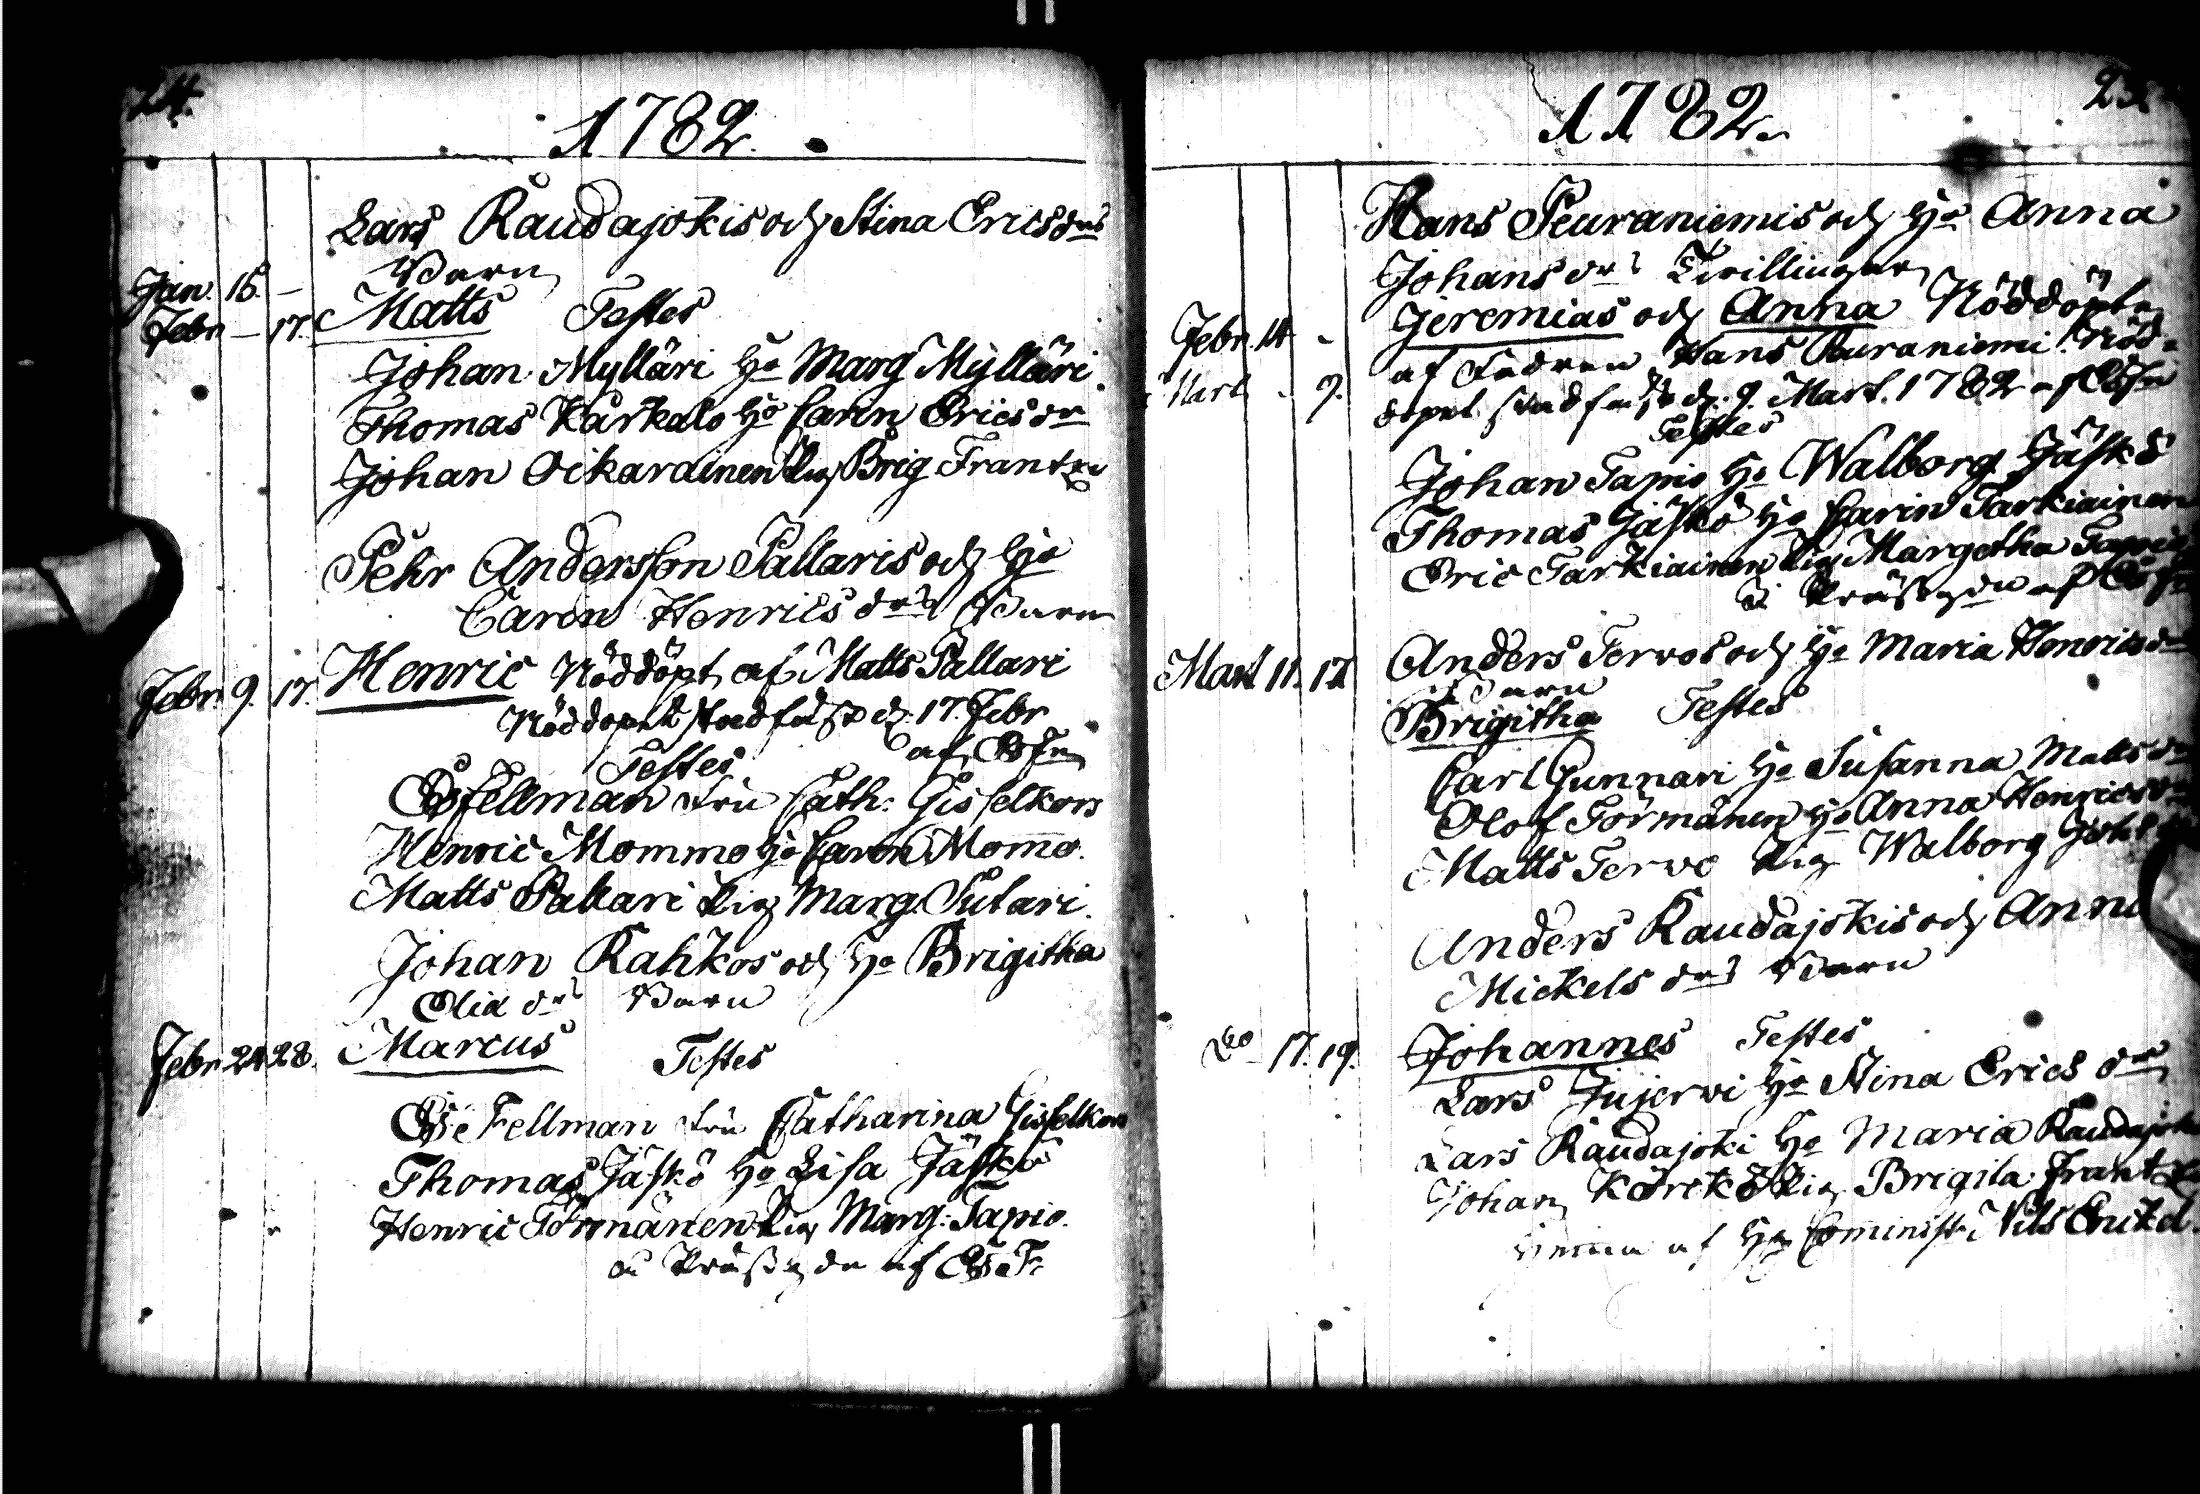 24.
1782.
Lars Raudajokis och Stina Ericsdrs
Barn
Jan. 16. –
Febr – 17. Matts Testes
Johan Mylläri Ho Marg Mylläri.
Thomas Karkalo Ho Carin Ericsdr
Johan Oikarainen Pig Brig Frantz
Pehr Andersson Pallaris och Ho
Caren Henricsdrs Barn
Febr 9. 17. Henric Nöddöpt af Matts Pallari
Nöddopet stadfäst d. 17. Febr
af EsFn
Testes
Es Fellman Fru Cath: Gisselkors
Henric Mommo Ho Caren Momo.
Matts Pallari Pig Marg. Sutari.
Johan Kahkos och Ho Brigitha
Eliædrs Barn
Febr 24 28. Marcus Testes
Es Fellman Fru Catharina Gisselkors
Thomas Jäskö Ho Lisa Jäskö
Henric Törmänen Pig Marg: Tapio.
i Prästgdn af Es F.
1782.
Hans Peuraniemis och Ho Anna
Johansdrs Tvillingar
Febr. 14 – Jeremias och Anna Nöddöpte
Mart. – 9. af Fadren Hans Peuraniemi. Nöd-
dopet stadfäst d. 9. Mart. 1782 af EsFn
Testes
Johan Tapio Ho Walborg Jäskö
Thomas Jäskö Ho Carin Tarkiainen
Eric Tarkiainen Pig Margetha Tapio
i Prästgdn af EsFn
Mart 11. 12 Anders Tervos och Ho Maria Henricsdr
Barn
Brigitha Testes
Carl Gunnari Ho Susanna Mattsdr
Olof Törmänen Ho Anna Henricsdr
Matts Tervo Pig Walborg Joh
Anders Raudajokis och Anna
Mickelsdrs Barn
Do – 17. 19. Johannes Testes
Lars Jujervi Ho Stina Ericsdr
Lars Raudajoki Ho Maria Raudajoki
Johan Körckö Pig Brigita Frantz
hemma af Hr Cominist. Nils Enckel.